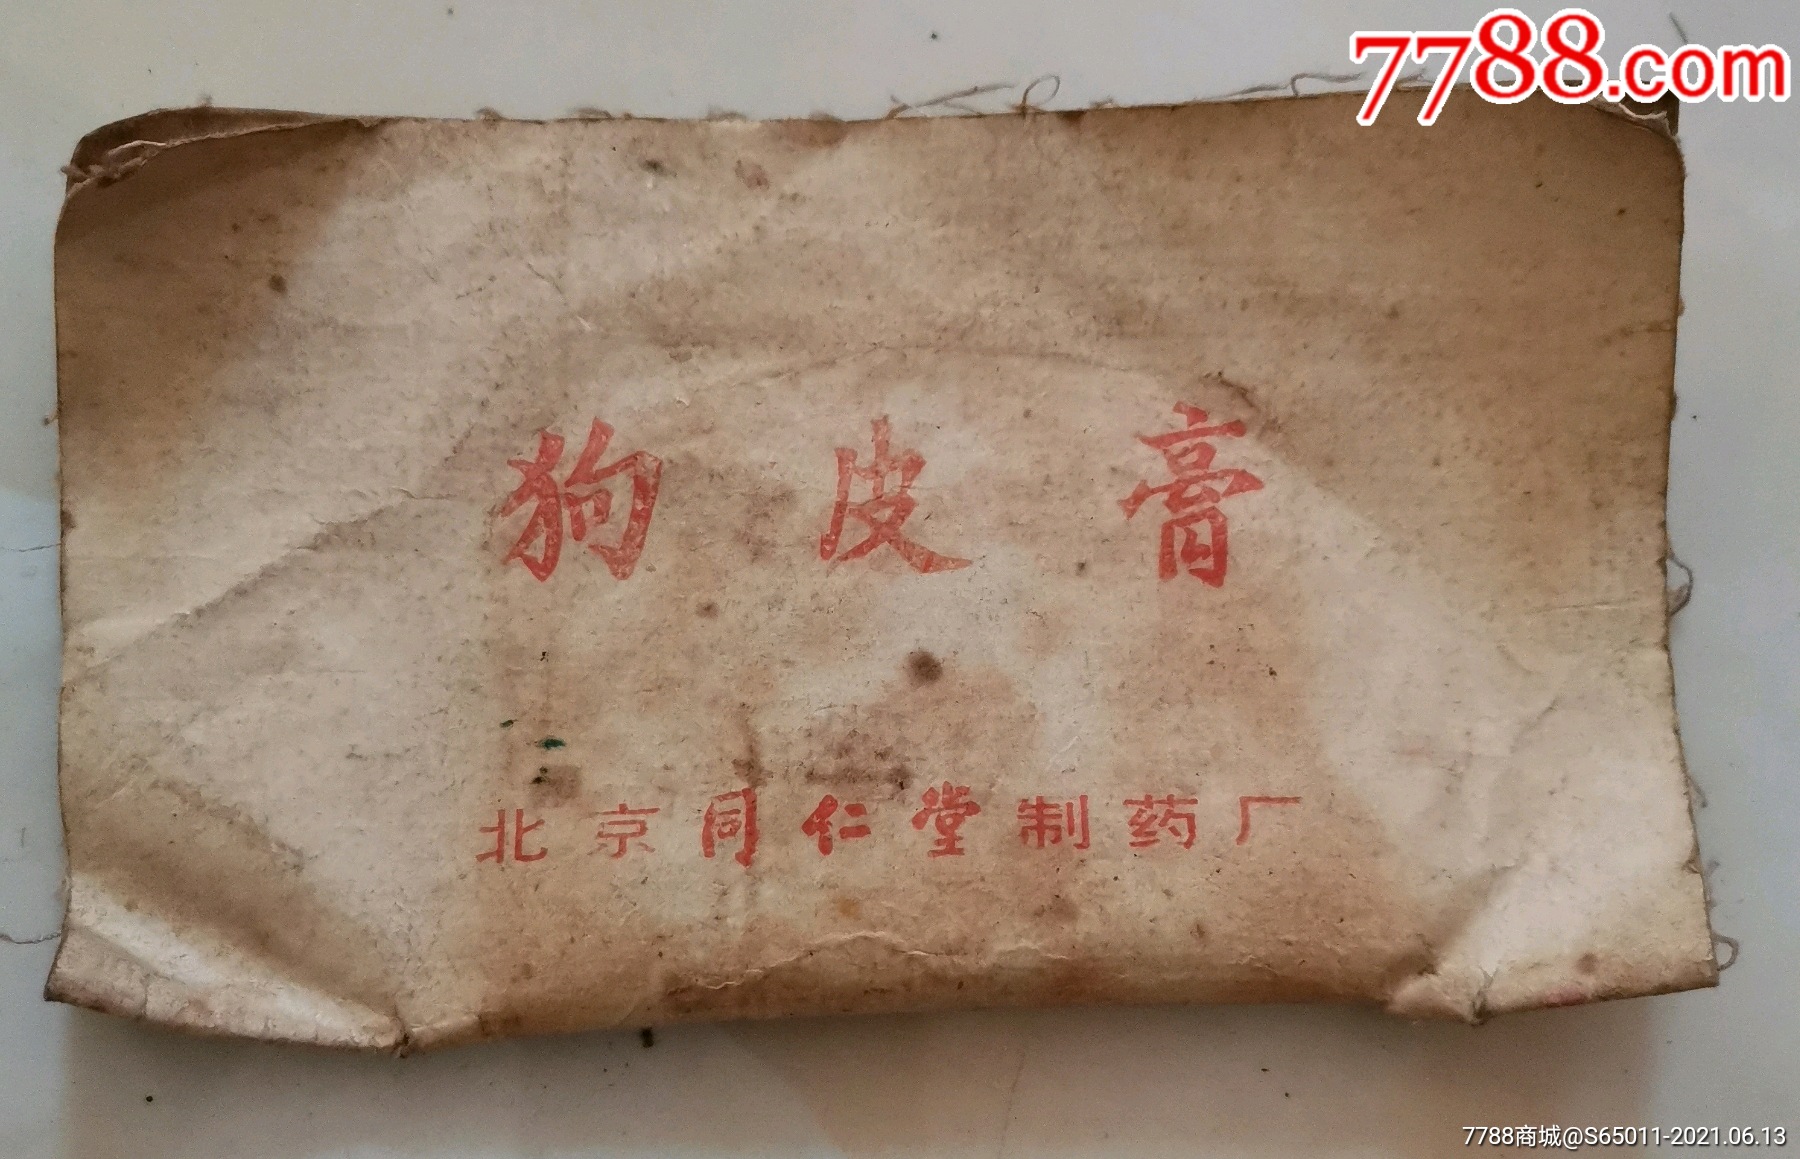 7788.com
狗皮膏
北京同仁堂制药厂
7788商城@S65011-2021.06.13